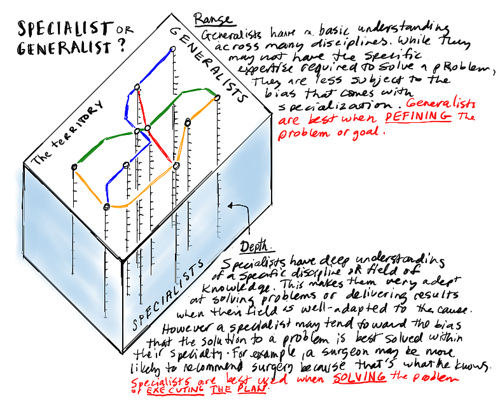 SPECIALIST OR
GENERALIST?
Range
Generalists have a basic understanding
across many disciplines. While they
may not have the specific
expertise required to solve a problem,
They are less subject to the
bias that comes with
specialization. Generalists
are best when DEFINING the
problem or goal.
The territory
GENERALISTS
SPECIALISTS
Depth.
Specialists have deep understanding
of a specific discipline or field of
knowledge. This makes them very adept
at solving problems or delivering results
when their field is well-adapted to the cause.
However a specialist may tend toward the bias
that the solution to a problem is best solved within
their specialty. For example, a surgeon may be more
likely to recommend surgery because that's what he knows.
Specialists are best used when SOLVING the problem
or EXECUTING THE PLAN.